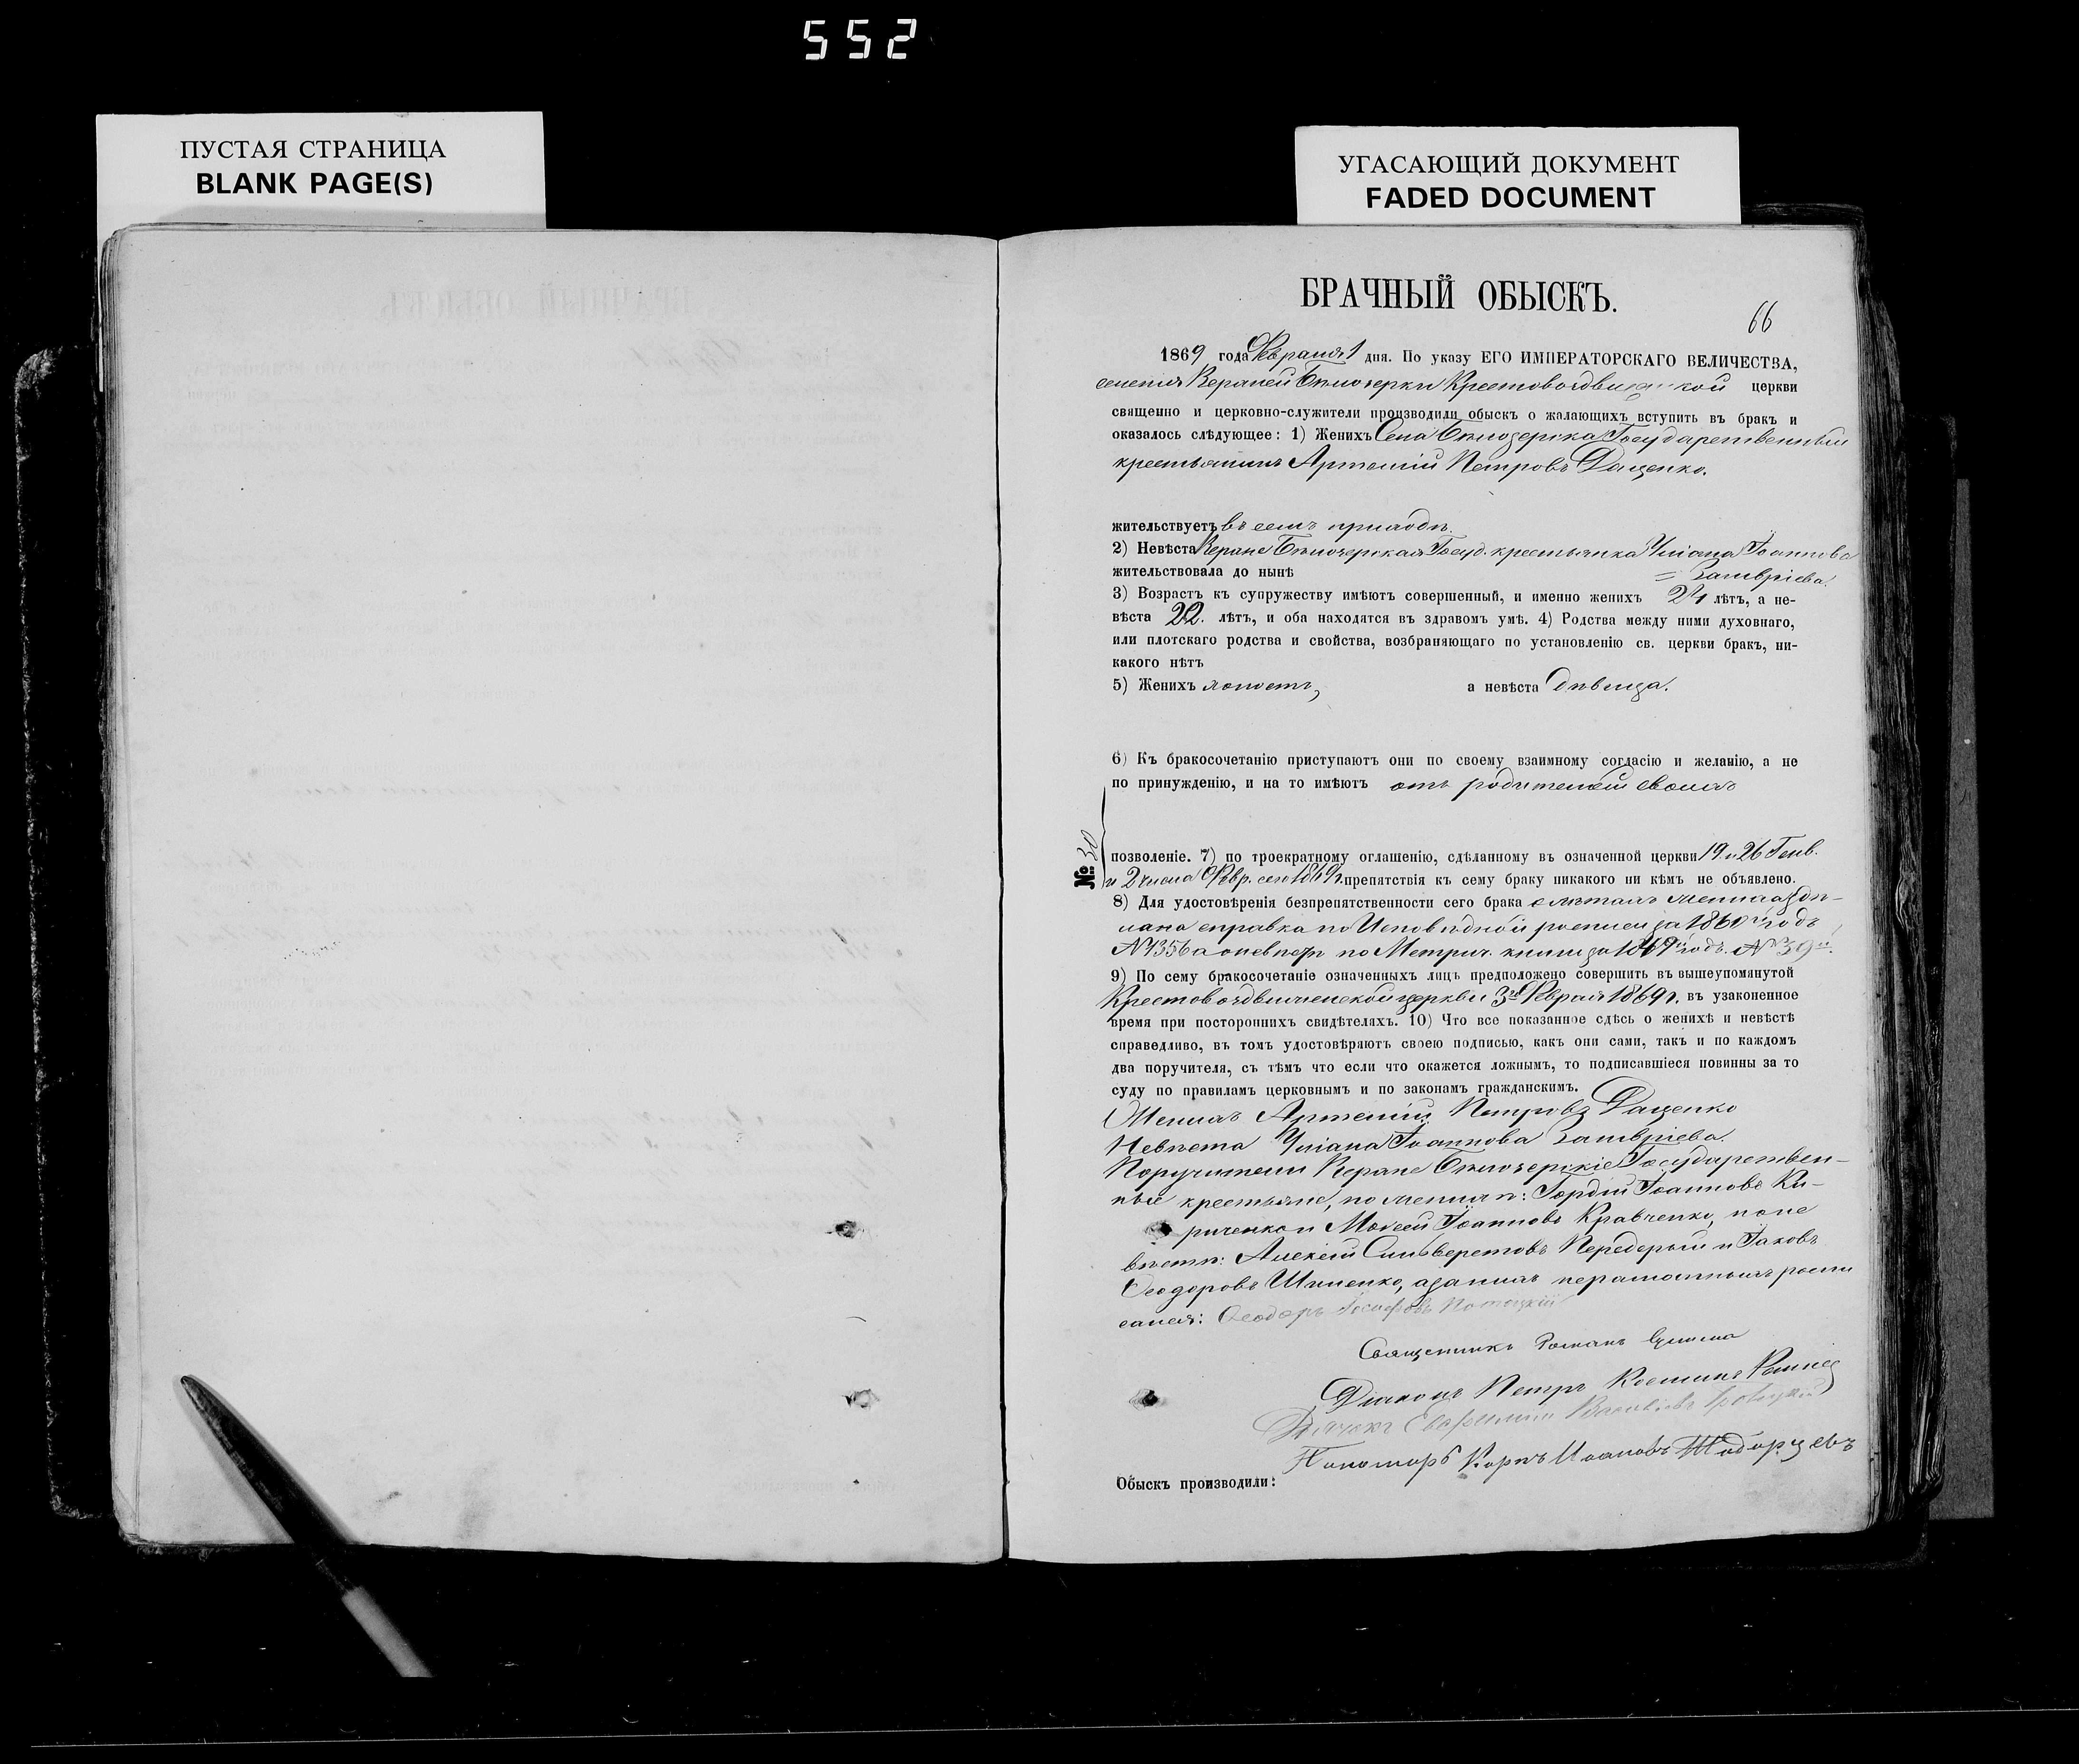 552
ПУСТАЯ СТРАНИЦА
BLANK PAGE(S)
УГАСАЮЩИЙ ДОКУМЕНТ
FADED DOCUMENT
БРАЧНЫЙ ОБЫСКЪ.
66
1869 года Февраля 1 дня. По указу ЕГО ИМПЕРАТОРСКАГО ВЕЛИЧЕСТВА,
селенія Верхней Бѣлозерки Крестовоздвиженской церкви
священно и церковно-служители производили обыскъ о жалающихъ вступить въ бракъ и
оказалось слѣдующее: 1) Женихъ Села Бѣлозерска Государственный
крестьянинъ Артемій Петровъ Даценко.
жительствуетъ въ семъ приходѣ.
2) Невѣста Верхне Бѣлозерская Госуд. крестьянка Уліана Іоаннова
жительствовала до нынѣ
= Замвріева.
3) Возрастъ къ супружеству имѣютъ совершенный, и именно женихъ 24 лѣтъ, а не-
вѣста 22. лѣтъ, и оба находятся въ здравомъ умѣ. 4) Родства между ними духовнаго,
или плотскаго родства и свойства, возбраняющаго по установленію св. церкви бракъ, ни-
какого нѣтъ
5) Женихъ холостъ, а невѣста дѣвица.
6) Къ бракосочетанію приступаютъ они по своему взаимному согласію и желанію, а не
по принужденію, и на то имѣютъ отъ родителей своихъ
№ 30
позволеніе. 7) по троекратному оглашенію, сдѣланному въ означенной церкви 19. и 26 Генв.
и 2 числа Февр. сего 1869 г. препятствія къ сему браку никакого ни кѣмъ не объявлено.
8) Для удостовѣренія безпрепятственности сего брака о лѣтахъ жениха здѣ-
лана справка по Исповѣдной росписи за годъ
№ 1356 а о невѣстѣ по Метрич. книгѣ за годъ. № 39
9) По сему бракосочетаніе означенныхъ лицъ предположено совершить въ вышеупомянутой
Крестовоздвиженской церкви 3го Февраля 1869 г. въ узаконенное
время при постороннихъ свидѣтеляхъ. 10) Что все показанное сдѣсь о женихѣ и невѣстѣ
справедливо, въ томъ удостовѣряютъ своею подписью, какъ они сами, такъ и по каждомъ
два поручителя, съ тѣмъ что если что окажется ложнымъ, то подписавшіеся повинны за то
суду по правиламъ церковнымъ и по законамъ гражданскимъ.
Женихъ Артемій Петровъ Даценко
Невѣста Уліана Іоаннова Замвріева.
Поручители Верхне Бѣлозерскіе Государствен-
ные крестьяне, по женихѣ: Гордій Іоанновъ Ки-
риченко и Моисей Іоанновъ Кравченко, по не
вѣстѣ: Алексій Сильверстовъ Передерый и Іаковъ
Ѳеодоровъ Шпиленко, а за нихъ неграмотныхъ роспи
сался: Ѳеодоръ Іосифовъ Потоцкій
Священникъ Романъ
Діаконъ Петръ Космичъ
Дьячокъ
Пономарь Карпъ Ивановъ
Обыскъ производили: